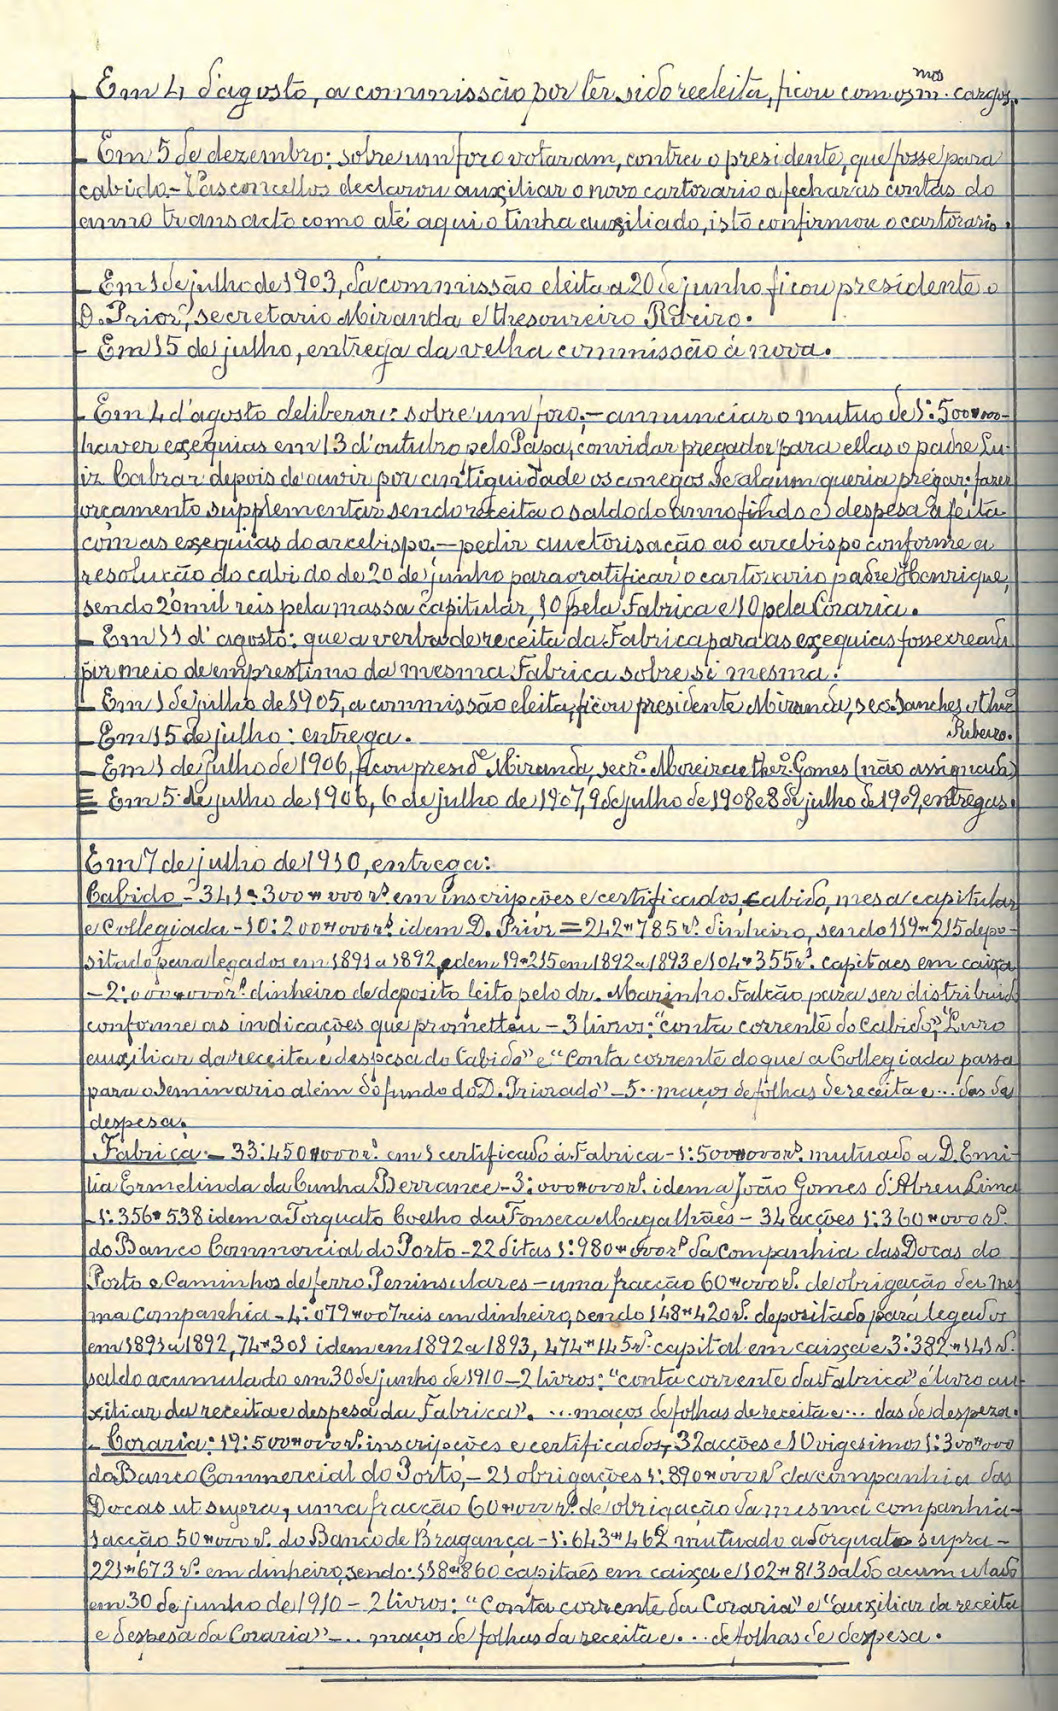 Em 4 d'agosto, a commissão por ter sido reeleita, ficou com os m.mos cargos.
- Em 5 de dezembro: sobre um foro votaram, contra o presidente, que fosse para
cabido. - Vasconcellos declarou auxiliar o novo cartorario a fechar as contas do
anno transacto como até aqui o tinha auxiliado, isto confirmou o cartorario.
- Em 1 de julho de 1903, da commissão eleita a 20 de junho ficou presidente o
D. Prior, secretario Miranda e thesoureiro Ribeiro.
- Em 15 de julho, entrega da velha commissão á nova.
- Em 4 d'agosto deliberou: sobre um foro; - annunciar o mutuo de 1:500#000-
haver exequias em 13 d'outubro pelo Papa, convidar pregador para ellas o padre Lu-
iz Cabral depois de ouvir por antiguidade os conegos se algum queria prégar; fazer
orçamento supplementar sendo receita o saldo do anno findo e despesa a feita
com as exequias do arcebispo. - pedir auctorisação ao arcebispo conforme a
resolução do cabido de 20 de junho para gratificar o cartorario padre Henrique,
sendo 20 mil reis pela massa capitular, 10 pela Fabrica e 10 pela Coraria.
- Em 11 d'agosto: que a verba de receita da Fabrica para as exequias fosse creada
por meio de emprestimo da mesma Fabrica sobre si mesma.
- Em 1 de julho de 1905, a commissão eleita, ficou presidente Miranda, sec. Sanches e thes.
Ribeiro.
- Em 15 de julho: entrega.
- Em 1 de julho de 1906, ficou presid.e Miranda, secr.o Moreira e thez. Gomes (não assignada)
= Em 5 de julho de 1906, 6 de julho de 1907, 9 de julho de 1908 e 8 de julho de 1909, entregas.
Em 7 de julho de 1910, entrega:
Cabido - 341:300#000 rs. em inscripções e certificados, cabido, mesa capitular
e Collegiada - 10:200#000 rs. idem D. Prior = 242#785 rs. dinheiro, sendo 119#215 depo-
sitado para legados em 1891 a 1892, idem 19#215 em 1892 a 1893 e 104#355 rs. capitaes em caixa
- 2:000#000 rs. dinheiro de deposito feito pelo dr. Marinho Falcão para ser distribuido
conforme as indicações que prometteu - 3 livros: "conta corrente do Cabido," "Livro
auxiliar da receita e despesa do Cabido" e "Conta corrente do que a Collegiada passa
para o Seminario alem do fundo do D. Priorado" - 5... maços de folhas de receita e ... das da
despesa.
Fabrica. - 33:450#000 rs. em 1 certificado á Fabrica - 1:500#000 rs. mutuado a D. Emi-
lia Ermelinda da Cunha Berrance - 3:000#000 rs. idem a João Gomes d'Abreu Lima
- 1:356#538 idem a Torquato Coelho da Fonseca Magalhães - 34 acções 1:360#000 rs.
do Banco Commercial do Porto - 22 ditas 1:980#000 rs. da Companhia das Docas do
Porto e Caminhos de ferro Peninsulares - uma fracção 60#000 rs. de obrigação da mes
ma companhia - 4:079#007 reis em dinheiro, sendo 148#420 rs. depositado para legados
em 1891 a 1892, 74#301 idem em 1892 a 1893, 474#145 rs. capital em caixa e 3:382#141 rs.
saldo acumulado em 30 de junho de 1910 - 2 livros: "conta corrente da Fabrica" e "livro au-
xiliar da receita e despesa da Fabrica". ... maços de folhas de receita e ... das de despeza.
- Coraria: 19:500#000 rs. inscripções e certificados, 32 acções e 10 vigesimos 1:300#000
do Banco Commercial do Porto, - 21 obrigações 1:890#000 rs. da companhia das
Docas ut supra, uma fracção 60#000 rs. de obrigação da mesma companhia -
1 acção 50#000 rs. do Banco de Bragança - 1:643#462 mutuado a Torquato supra -
221#673 rs. em dinheiro, sendo: 118#860 capitaes em caixa e 102#813 saldo acumulado
em 30 de junho de 1910 - 2 livros: "Conta corrente da Coraria" e "auxiliar da receita
e despesa da Coraria" - ... maços de folhas da receita e ... de folhas de despesa.